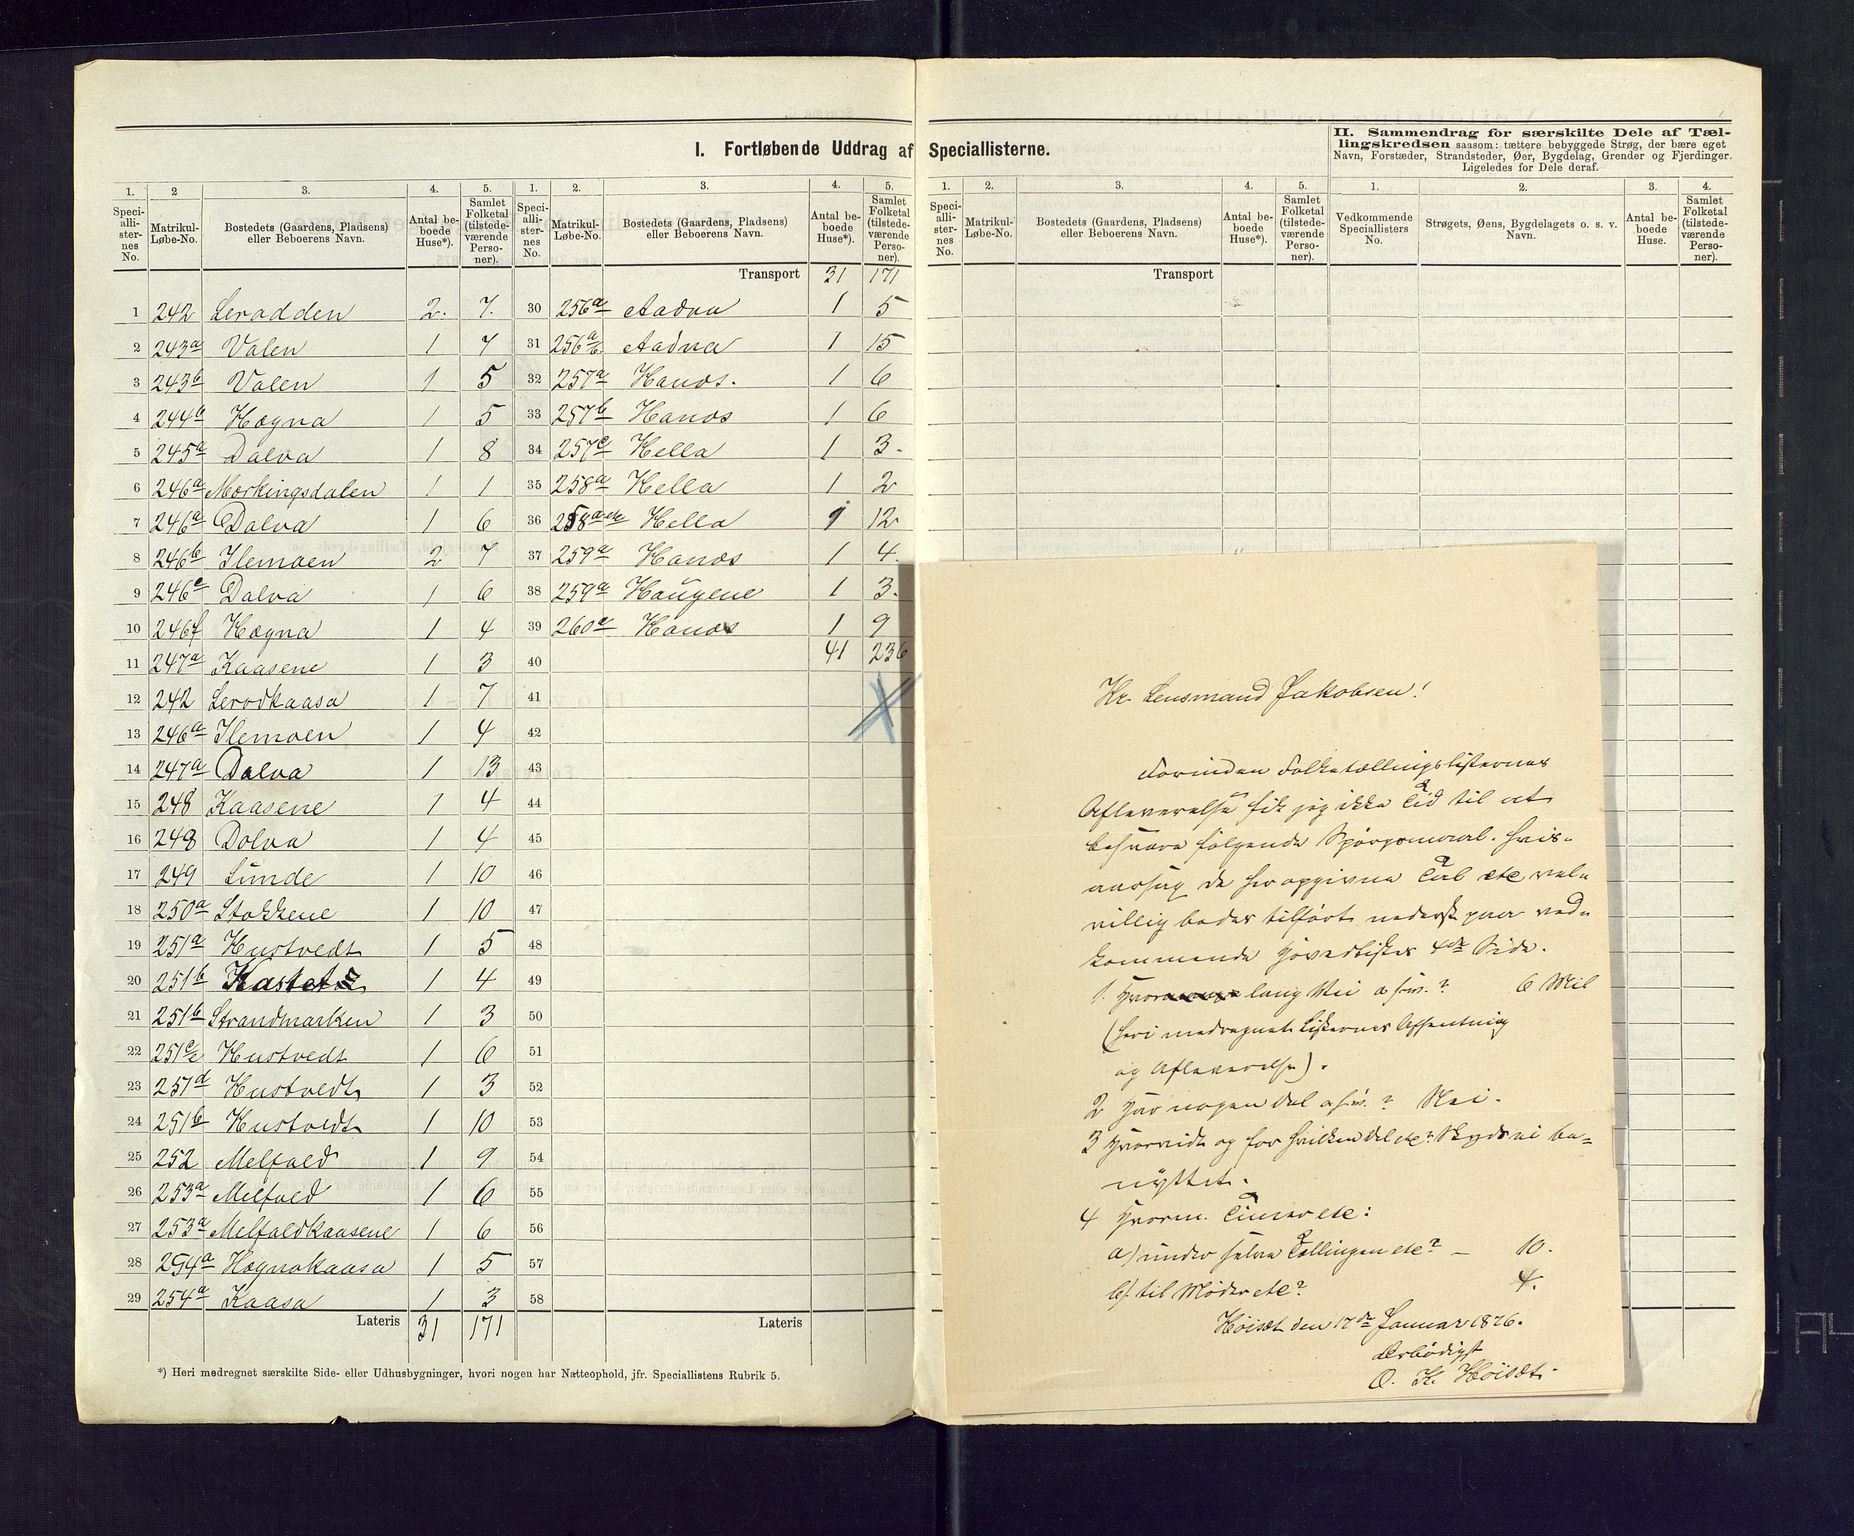 I. Fortløbende Uddrag af Speciallisterne.
II. Sammendrag for særskilte Dele af Tællingskredsen saasom: tættere bebyggede Strøg, der bære eget
Navn, Forstæder, Strandsteder, Øer, Bygdelag, Grender og Fjerdinger.
Ligeledes for Dele deraf.
1. 2 3. 4. 5. 1. 2. 3. 4. 5.
Speciallisternes No. Matrikul-Løbe-No. Bostedets (Gaardens, Pladsens) eller Beboerens Navn. Antal beboede Huse*). Samlet Folketal (tilstedeværende Personer).
Speciallisternes No. Matrikul-Løbe-No. Bostedets (Gaardens, Pladsens) eller Beboerens Navn. Antal beboede Huse*). Samlet Folketal (tilstedeværende Personer).
1 242 Lerodden 2. 7.
2 243a Valen 1 7
3 243b Valen 1 5
4 244a Hægna 1 5
5 245a Dalva 1 8
6 246a Morkingsdalen 1 1
7 246a Dalva 1 6
8 246b Ilemoen 2 7
9 246e Dalva 1 6
10 246f Hægna 1 4
11 247a Kaasene 1 3
12 242 Lerodkaasa 1 7
13 246a Ilemoen 1 4
14 247a Dalva 1 13
15 248 Kaasene 1 4
16 248 Dolva 1 4
17 249 Lunde 1 10
18 250a Stokkene 1 10
19 251a Hustvedt 1 5
20 251b Kastet 1 4
21 251b Strandmarken 1 3
22 251c/2 Hustvedt 1 6
23 251d Hustvedt 1 3
24 251b Hustvedt 1 10
25 252 Melfald 1 9
26 253a Melfald 1 6
27 253a Melfaldkaasene 1 6
28 254a Hægnakaasa 1 5
29 254a Kaasa 1 3
Lateris 31 171
Transport 31 171
30 256a Aadna 1 5
31 256a/b Aadna 1 15
32 257a Hanos. 1 6
33 257b Hanos 1 6
34 257c Hella 1 3.
35 258a Hella 1 2
36 258a etc Hella 1 12
37 259a Hanos 1 4.
38 259a Haugene 1 3.
39 260a Hanos 1 9
40 41 236
41
42
43
44
45
46
47
48
49
50
51
52
53
54
55
56
57
58
Lateris
*) Heri medregnet særskilte Side- eller Udhusbygninger, hvori nogen har Natteophold, jfr. Speciallistens Rubrik 5.
1. 2. 3. 4. 5. 1. 2. 3. 4.
Speciallisternes No. Matrikul-Løbe-No. Bostedets (Gaardens, Pladsens) eller Beboerens Navn. Antal beboede Huse*). Samlet Folketal (tilstedeværende Personer).
Vedkommende Speciallisters No. Strøgets, Øens, Bygdelagets o. s. v. Navn. Antal beboede Huse. Samlet Folketal (tilstedeværende Personer).
Transport
Hr. Lensmand Jakobsen!
Forinden Folketællingslisternes
Afleverelse fik jeg ikke Tid til at
besvare følgende Spørgsmaal. Hvis-
aarsag de her opgivne Tal etc vel-
villig bedes tilført nederst paa ved-
kommende Hovedlistes 4de Side.
1. Hvor lang Vei o.s.v.? 6 Mil
(heri medregnet Listernes Afhentning
og Afleverelse).
2 Har nogen Del o.s.v.? Nei.
3 Hvorvidt og for hvilken Del etc? Skyds ei be-
nyttet.
4 Hvorm. Timer etc:
a) under selve Tællingen etc? – 10.
b) til Møder etc? 4.
Høisæt den 17de Januar 1876.
Ærbødigst
O. K. Høisæt.